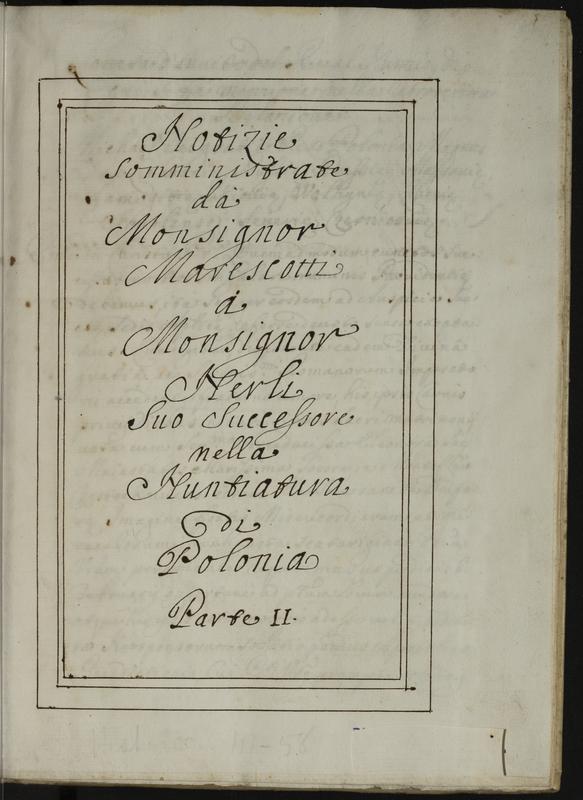 Notizie
somministrate
da
Monsignor
Marescotti
á
Monsignor
Nerli
Suo Successore
nella
Nuntiatura
di
Polonia
Parte II.